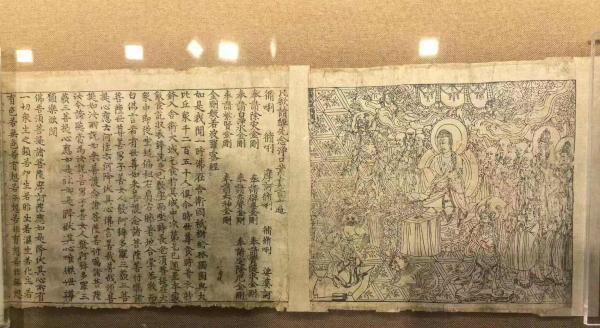 凡欲讀經先念淨口業真言一遍
脩唎 脩唎 摩訶脩唎 脩脩唎 娑婆訶
奉請除災金剛 奉請辟毒金剛
奉請黃隨求金剛 奉請白淨水金剛
奉請赤聲金剛 奉請定除厄金剛
奉請紫賢金剛 奉請大神金剛
金剛般若波羅蜜經
如是我聞一時佛在舍衛國祇樹給孤獨園與大
比丘衆千二百五十人俱尒時世尊食時著衣持
鉢入舍衛大城乞食於其城中次第乞已還至本處
飯食訖收衣鉢洗足已敷座而坐時長老須菩提在大
衆中即從座起偏袒右肩右膝著地合掌恭敬而
白佛言希有世尊如來善護念諸菩薩善付囑諸菩
薩世尊善男子善女人發阿耨多羅三藐三菩
提心應云何住云何降伏其心佛言善哉善哉須菩
提如汝所說如來善護念諸菩薩善付囑諸菩薩
汝今諦聽當為汝說善男子善女人發阿耨多羅三
藐三菩提心應如是住如是降伏其心唯然世尊
願樂欲聞
佛告須菩提諸菩薩摩訶薩應如是降伏其心所有
一切衆生之類若卵生若胎生若濕生若化生若
有色若無色若有想若無想若非有想